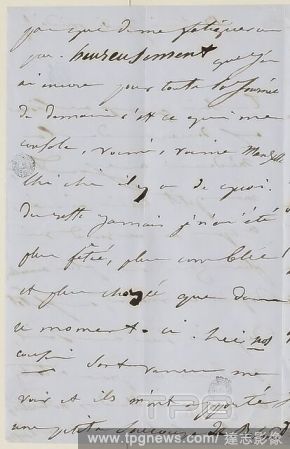 pas que de me fatiguer un
peu. heureusement que j'en
ai encore pour toute la journée
de demain c'est ce qui me
console, ruinée, ruinée
chi chi il y a de quoi.
du reste jamais je n'ai été
plus fêtée, plus comblée
et plus choyée que dans
ce moment-ci. hier nos
cousin sont venus me
voir et ils m'ont apporté
une petite
TPG
www.tpgnews.com / 達志影像